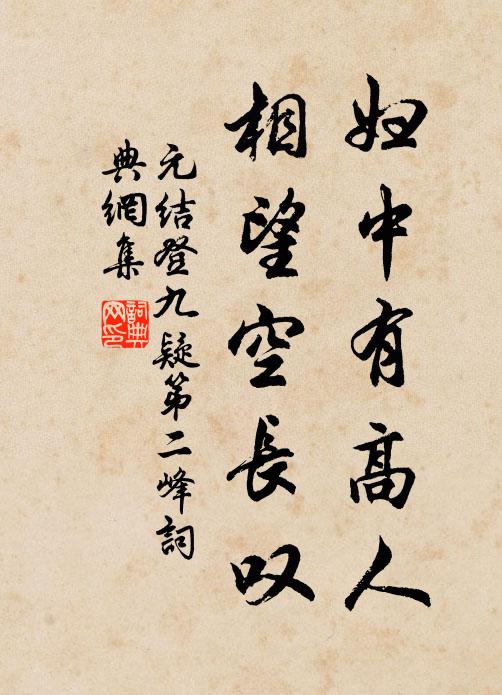 妇中有高人
相望空長叹
元结登九疑第二峰詞
典網集
詞典网印